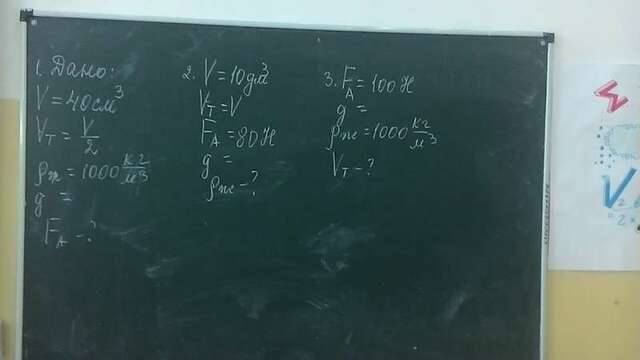 1. Дано:
V = 40 см³
Vт = V/2
ρж = 1000 кг/м³
g =
FA - ?
2. V = 10 дм³
Vт = V
FA = 80 Н
g =
ρж - ?
3. FA = 100 Н
g =
ρж = 1000 кг/м³
Vт - ?